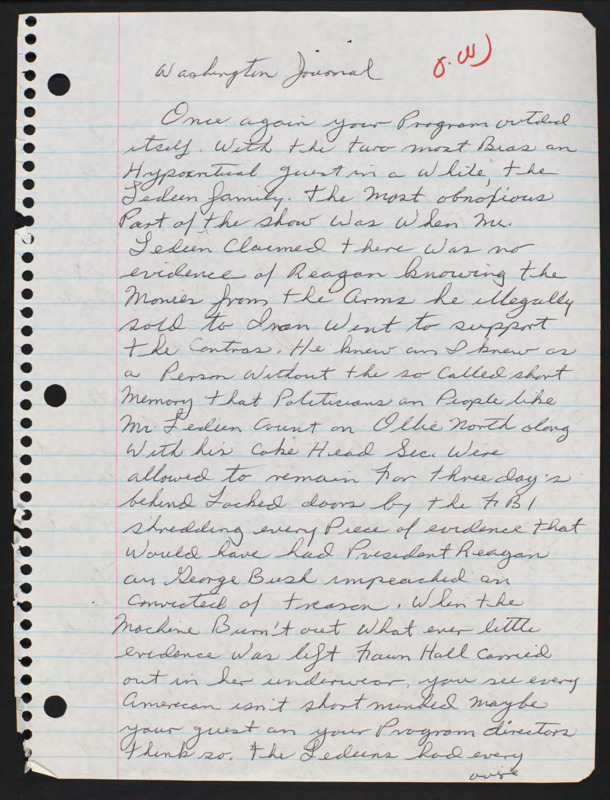 Washington Journal
J.W)
Once again your Program outdid
itself. With the two most Bias an
Hypocritical guest in a While, the
Ledeen family. The most obnoxious
Part of the show Was When Mr.
Ledeen Claimed there Was no
evidence of Reagan knowing the
Monies from the Arms he illegally
sold to Iran Went to support
the Contras. He knew an I knew as
a Person Without the so called short
Memory that Politicians an People like
Mr. Ledeen Count on Ollie North along
With his Coke Head Sec. Were
allowed to remain For three day's
behind Locked doors by the FBI
shredding every Piece of evidence that
Would have had President Reagan
an George Bush impeached an
Convicted of treason. When the
Machine Burn't out What ever little
evidence Was left Fawn Hall Carried
out in her underwear, you see every
American isn't short minded maybe
your guest an your Program directors
think so. The Ledeens had every